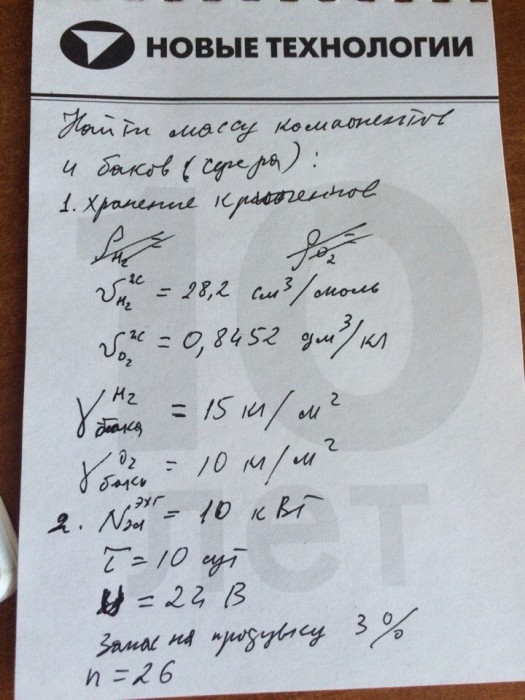 НОВЫЕ ТЕХНОЛОГИИ
10
лет
Найти массу компонентов
и баков (сфера):
1. Хранение криогентов
ρ H₂ = ρ O₂ =
υ^ж H₂ = 28,2 см³/моль
υ^ж O₂ = 0,8452 дм³/кг
γ^H₂ бака = 15 кг/м²
γ^O₂ бака = 10 кг/м²
2. N^ЭХГ эл = 10 кВт
τ = 10 сут
U = 24 В
Запас на продувку 3%
n = 26